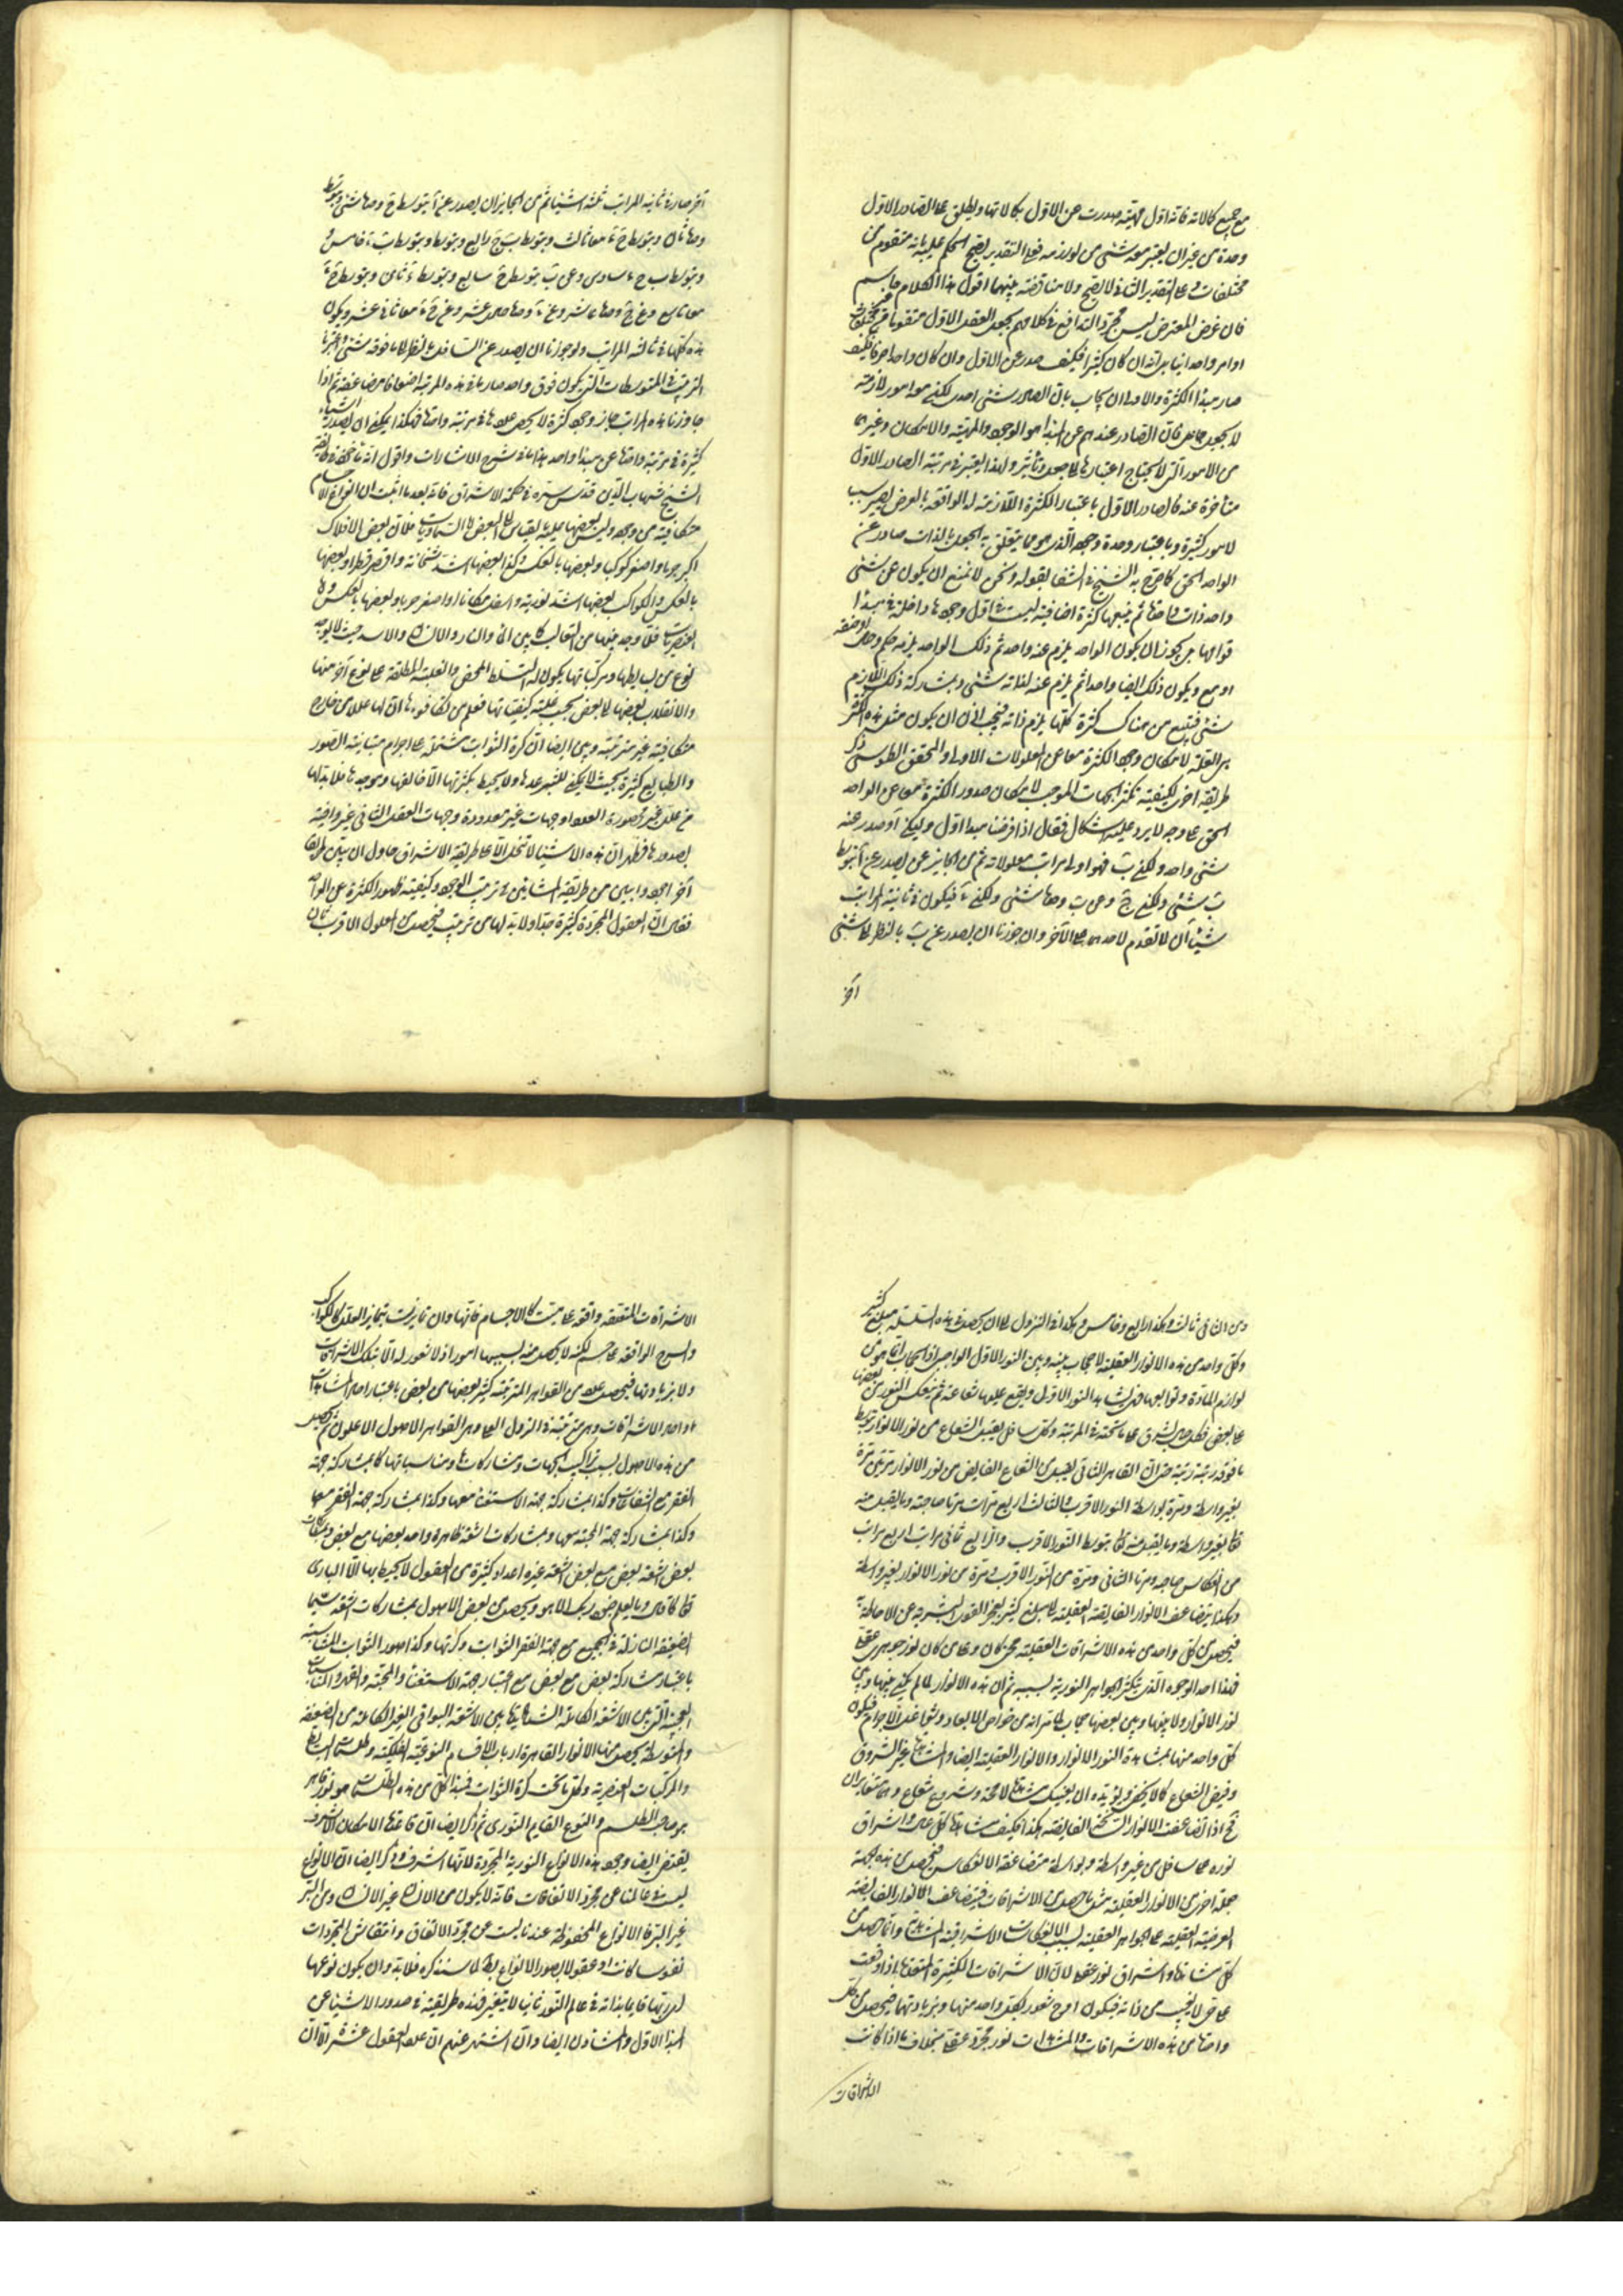 مع جميع كالاته فانه اول مهية صدرت عن الاول بكالاتها ويطلق على الصادر الاول
وحده من غير ان يعتبر معه شئ من لوازمه فعلى التقدير يصح الحكم عليه بانه متقوم من
مختلفات وعلى التقدير الثانى لا يصح ولا مناقضة بينهما اقول هذا الكلام حاسم
فان غرض المعترض ليس مجرد التدافع فى كلامهم بجعل العقل الاول متقوما من مختلفات
او امر واحد انيا بل انه ان كان كثيرا فكيف صدر عن الاول وان كان واحدا صرفا فكيف
صار مبدأ الكثرة والاولى ان يجاب بان الصادر شئ احدى لكنه معه امور لازمته
لا بجعل جاعل فان الصادر عندهم عن المبدأ هو الوجود والمهية والامكان وغيرها
من الامور التى لا يحتاج اعتبارها لا جعل وتأثير ولهذا يعتبر فى مرتبة الصادر الاول
متأخرة عنه فالصادر الاول باعتبار الكثرة اللازمة له الواقعه بالعرض يصير سبب
لامور كثيرة وباعتبار وحدة وجوده الذى هو ما يتعلق به الجعل بالذات صادر عن
الواحد الحق كما صرح به الشيخ فى الشفا بقوله ونحن لا نمنع ان يكون عن شئ
واحد ذات واحدة ثم يتبعها كثرة اضافية ليست فى اول وجودها داخلة فى مبدأ
قوامها بل يجوز ان يكون الواحد يلزم عنه واحد ثم ذلك الواحد يلزمه حكم وحال او صفة
او مع ويكون ذلك ايضا واحدا ثم يلزم عنه لذاته شئ وبمشاركة ذلك اللازم
شئ فيتبع من هناك كثرة كلها يلزم ذاته فيجب اذن ان يكون مثل هذه الكثرة
هى العلة لامكان وجود الكثرة معا عن المعلولات الاولى والمحقق الطوسى ذكر
طريقة اخرى لكيفية تكثر الجهات الموجب لامكان صدور الكثرة معا عن الواحد
الحق على وجه لا يرد عليه اشكال فقال اذا فرضنا مبدأ اول وليكن آ وصدر عنه
شئ واحد وليكن ب فهو اولى مراتب معلولاته ثم من الجايز عن يصدر عن آ بتوسط
ب شئ وليكن ج وعن ب وحده شئ وليكن ء فيكون فى ثانية المراتب
شيئان لا تقدم لاحدهما على الآخر وان جوزنا ان يصدر عن ب بالنظر الى شئ
آخر
آخر صار فى ثانية المراتب ثلثة اشياء ثم من الجايز ان يصدر عن آ بتوسط ج وحدها شئ وبتوسط
وحدها ثان وبتوسط ج ء معا ثالث وبتوسط ب ج رابع وبتوسط وبتوسط ب ء خامس
وبتوسط ب ج ء سادس وعن ب بتوسط ج سابع وبتوسط ء ثامن وبتوسط ج ء
معا تاسع وعن ج وحدها عاشر وعن ء وحدها حادى عشر وعن ج ء معا ثانى عشر ويكون
هذه كلها فى ثالثة المراتب ولو جوزنا ان يصدر عن السافل بالنظر الى ما فوقه شئ واعتبرنا
الترتيب فى المتوسطات التى يكون فوق واحد صار ما فى هذه المرتبة اضعافا مضاعفة ثم اذا
جاوزنا هذه المراتب جاز وجود كثرة لا يحصى عددها فى مرتبة واحدة فهكذا يمكن ان يصدر اشياء
كثيرة فى مرتبة واحدة عن مبدأ واحد هذا ما فى شرح الاشارات واقول انه ناقض فى طريقة
الشيخ شهاب الدين قدس سره فى حكمة الاشراق فانه بعد ما اثبت ان انواع الاجسام
متكافية من وجه وليس بعضها علة بالقياس الى البعض اما السماويات فلان بعض الافلاك
اكبر جرما واصغر كوكبا وبعضها بالعكس وكذا بعضها اشد شخانة واقصر قطرا وبعضها
بالعكس والكواكب بعضها اشد نورية واسفل مكانا او اصغر جرما وبعضها بالعكس واما
العنصريات فلما وجد بينها من التغالب كما بين الماء والنار والانسان والاسد حيث لا يوجد
نوع من بسايطها ومركباتها يكون له التسلط المحض والغلبة المطلقة على نوع آخر منها
والانقلاب بعضها لا بعض بحسب غلبة كيفياتها فعلم من تكافوءها ان لها عللا من خارج
متكافية غير مترتبة وبين ايضا ان كرة الثوابت مشتملة على اجرام متباينة الصور
والطبايع كثيرة بحيث لا يمكن للبشر عدها ولا يحيط بكثرتها الا خالقها وموجدها فلابد لها
من علل غير محصورة العدد او جهات غير معدودة وجهات العقل الثانى غير وافية
بصدورها فظهر ان هذه الاشياء لا تنحل الا على طريقة الاشراق حاول ان يبين طريقا
آخر اجود وابين من طريقة المشائين فى ترتيب الوجود وكيفية ظهور الكثرة عن الواحد
فقال ان العقول المجردة كثيرة جدا ولابد لها من ترتيب فيحصل من المعلول الاقرب ثان
ومن الثانى ثالث وهكذا رابع وخامس وهكذا فى النزول الى ان يحصل فى هذه السلسلة مبلغ كثير
وكل واحد من هذه الانوار العقلية لا حجاب بينه وبين النور الاول الواجبى اذ الحجاب انما هو من
لوازم المادة وتوابعها فيشاهد النور الاول ويقع عليها شعاعه ثم ينعكس النور من بعضها
على بعض فكل عال يشرق على ما تحته فى المرتبة وكل سافل يقبل الشعاع من نور الانوار بتوسط
ما فوقه رتبة رتبة حتى ان القاهر الثانى يقبل من الشعاع الفايض من نور الانوار مرتين مرة
بغير واسطة ومرة بواسطة النور الاقرب والثالث اربع مرات مرتا صاحبه وما يقبل منه
تعا بغير واسطة وما يقبل منه تعا بتوسط النور الاقرب والرابع ثمانى مرات اربع مرات
من انعكاس صاحبه ومرتا الثانى ومرة من النور الاقرب ومرة من نور الانوار بغير واسطة
وهكذا يتضاعف الانوار الفايضة العقلية الى مبلغ كثير يعجز القوى البشرية عن الاحاطة به
فيحصل من كل واحد من هذه الاشراقات العقلية ممن كان وعلى من كان نور جوهرى عقلى
فهذا احد الوجوه الذى يتكثر الجواهر النورية لسببه ثم ان هذه الانوار لما لم يكن بينها وبين
نور الانوار ولا بينها وبين بعضها حجاب لما مر انه من خواص الابعاد وشواغل الاجرام فيكون
كل واحد منها بمشاهدة النور الانوار والانوار العقلية ايضا والمشاهدة غير الشروق
وفيض الشعاع كما لا يخفى ويؤيده ان لعينك مشاهدة لامحة وشروع شعاع وهما متغايران
فح اذا تضاعفت الانوار السانحة الفايضة هكذا فكيف مشاهدة كل عال واشراق
نوره على سافل من غير واسطة وبواسطة متضاعفة الانعكاس فيحصل من هذه الجهة
جملة اخرى من الانوار العقلية مثل ما حصل من الاشراقات فيتضاعف الانوار الفايضة
العرضية العقلية على الجواهر العقلية لسبب الانعكاسات الاشراقية المشاهدة وانما حصل من
كل مشاهدة واشراق نور عقلى لان الاشراقات الكثيرة المتعددة اذا وقعت
على حى لا يغيب من ذاته فيكون اوح شعور بكل واحد منها وبزيادتها فيحصل من كل
واحدة من هذه الاشراقات والمشاهدات نور مجرد عقلى بخلاف ما اذا كانت
الاشراقات
الاشراقات المتفقة واقعة على ميت كالاجسام فانها وان تمايزت بتمايز العلل كالكواكب
والسرج الواقعة على جسم لكنه لا يحصل منه بسببها امور اذ لا شعور له لا بتلك الاشراقات
ولا بزيادتها فيحصل عدد من القواهر المترتبة كثير بعضها من بعض باعتبار احاد المشاهدات
واحاد الاشراقات وهى مترتبة فى النزول العلى وهى القواهر الاصول الاعلون ثم يحصل
من هذه الاصول بسبب تراكيب الجهات ومشاركاتها ومناسباتها كما بمشاركة جهة
الفقر مع الشعاعات وكذا بمشاركة جهة الاستغناء معها وكذا بمشاركة جهة القهر معها
وكذا بمشاركة جهة المحبة معها وبمشاركات اشعة ظاهرة واحد بعضها مع بعض وبمشاركات
بعض اشعة بعض مع بعض اشعة غيره اعداد كثيرة من العقول لا يحيط بها الا البارى
تعا كما قال وما يعلم جنود ربك الا هو ويحصل من بعض الاصول بمشاركات اشعة سيما
الضعيفة النازلة فى الجميع مع جهة الفقر الثوابت وكرتها وكذا صور الثوابت المتناسبة
باعتبار مشاركة بعض مع بعض مع اعتبار جهة الاستغناء والمحبة والقهر والمناسبات
العجيبة التى بين الاشعة الكاملة الشديدة وما بين الاشعة البواقى الغير الكاملة من الضعيفة
والمتوسطة يحصل منها الانوار القاهرة ارباب الاصنام النوعية الفلكية وطلسمات البسايط
والمركبات العنصرية وكل ما تحت كرة الثوابت فمبدأ كل من هذه الطلسمات هو نور قاهر
هو صاحب الطلسم والنوع القايم النورى ثم ذكر ايضا ان قاعدة الامكان الاشرف
يقتضى ايضا وجود هذه الانواع النورية المجردة لانها اشرف وذكر ايضا ان الانواع
ليست فى عالمنا عن مجرد الاتفاقات فانه لا يكون من الانسان غير الانسان ومن البر
غير البر فالانواع المحفوظة عندنا ليست عن مجرد الاتفاق وانتقاش المجردات
نفوسا كانت او عقولا بصور الانواع لما سنذكره فلابد وان يكون نوعها
قايما بذاته فى عالم النور ثابتا لا يتغير فهذه طريقته فى صدور الاشياء عن
المبدأ الاول والمشاؤن ايضا وان اشتهر عنهم ان عدد العقول عشرة الا ان